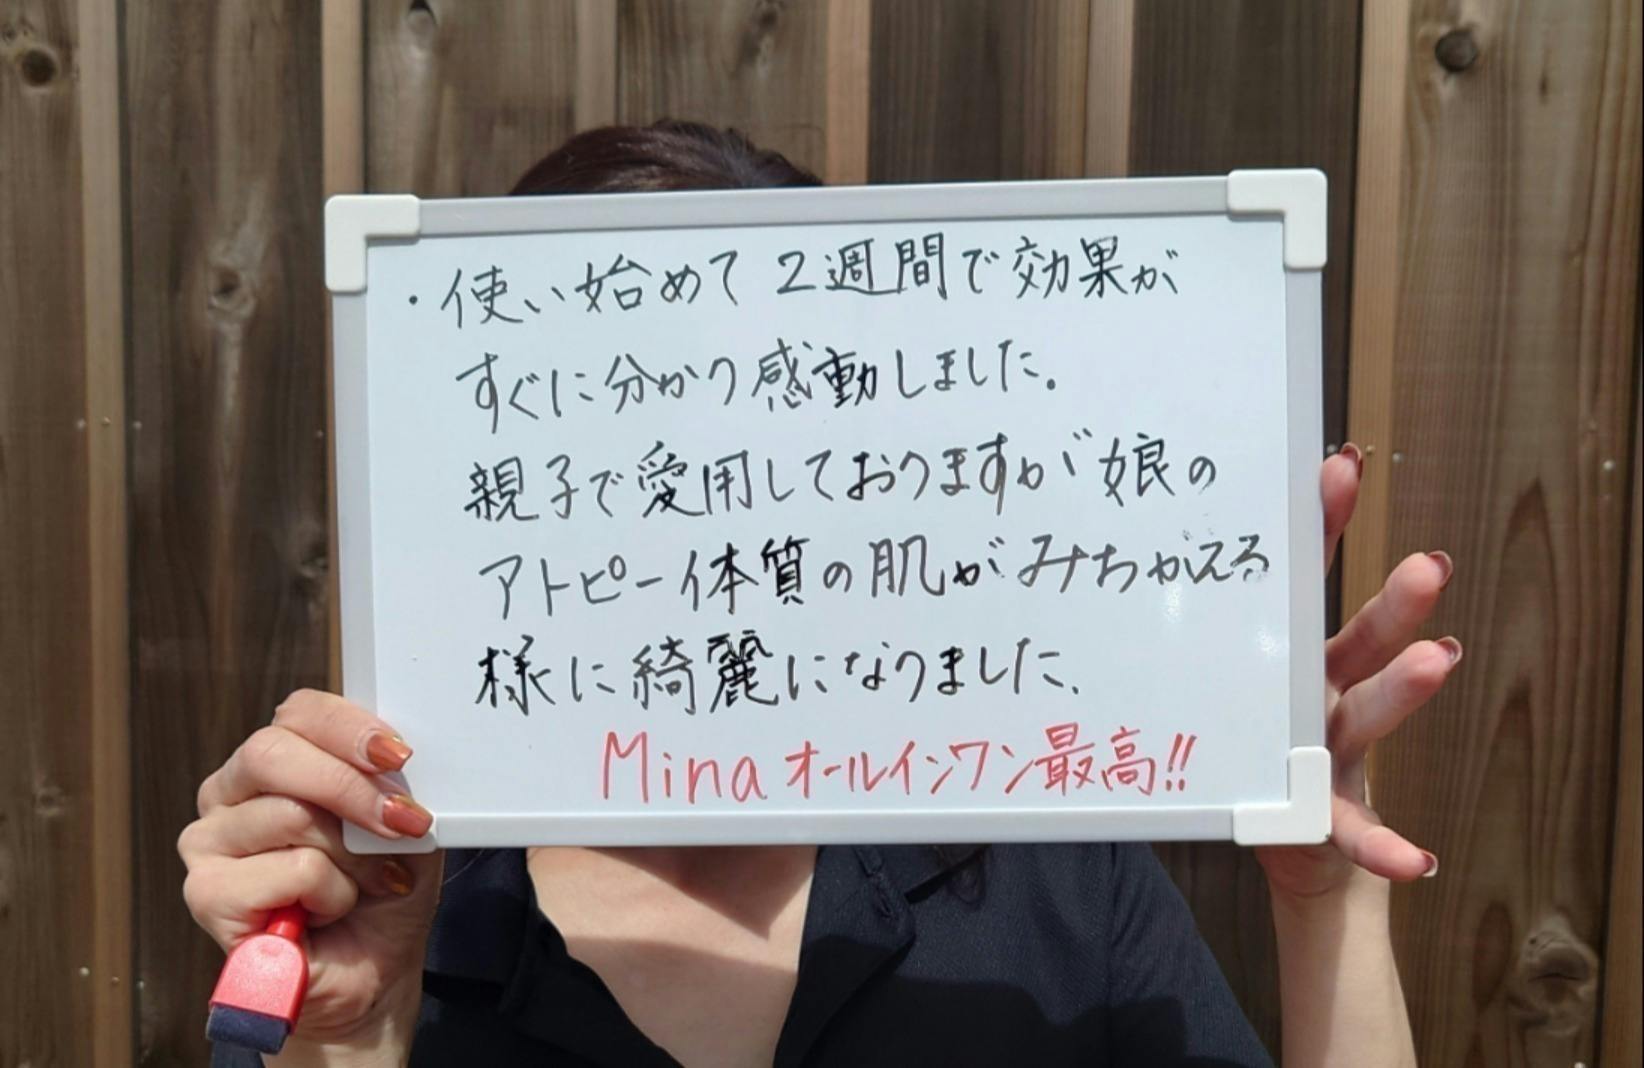 ・使い始めて2週間で効果が
すぐに分かり感動しました。
親子で愛用しておりますが娘の
アトピー体質の肌がみちがえる
様に綺麗になりました、
Minaオールインワン最高!!